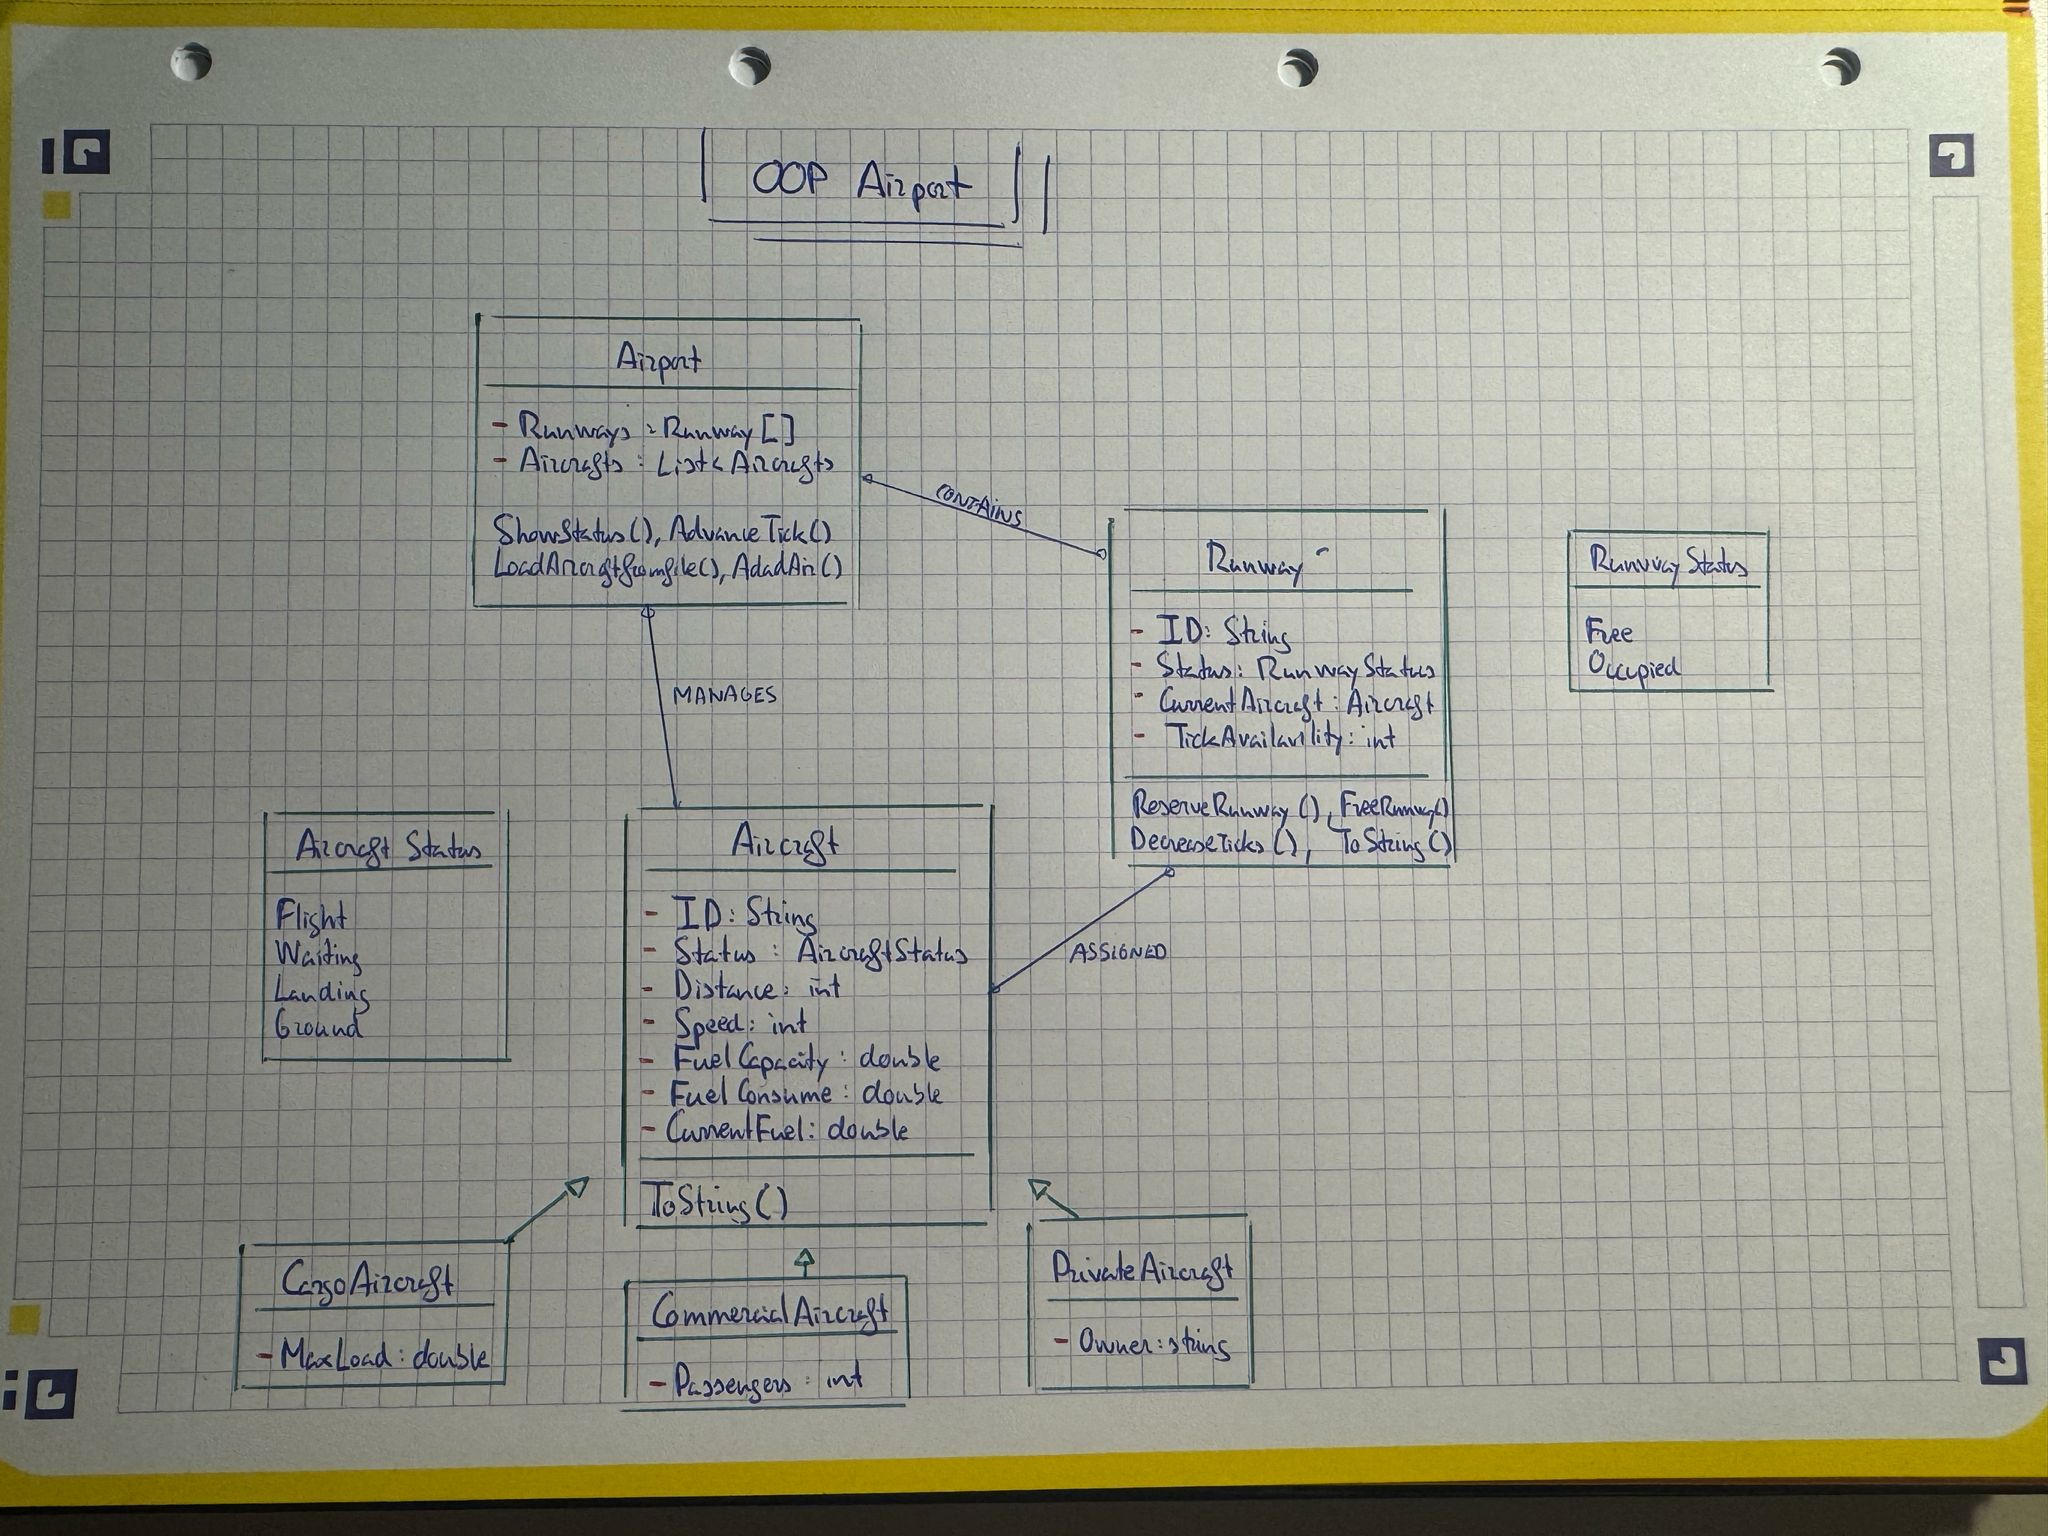 OOP Airport
Airport
- Runways : Runway []
- Aircrafts : List< Aircrafts
ShowStatus(), AdvanceTick()
LoadAircraftfromfile(), AdadAir()
CONTAINS
MANAGES
Runway
- ID: String
- Status: RunwayStatus
- CurrentAircraft : Aircraft
- TickAvailavility: int
ReserveRunway(), FreeRunway()
DecreaseTicks(), ToString()
RunwayStatus
Free
Occupied
ASSIGNED
Aircraft Status
Flight
Waiting
Landing
Ground
Aircraft
- ID: String
- Status : AircraftStatus
- Distance: int
- Speed: int
- Fuel Capacity : double
- Fuel Consume : double
- CurrentFuel: double
ToString()
CargoAircraft
- MaxLoad: double
CommercialAircraft
- Passengers : int
PrivateAircraft
- Owner: string